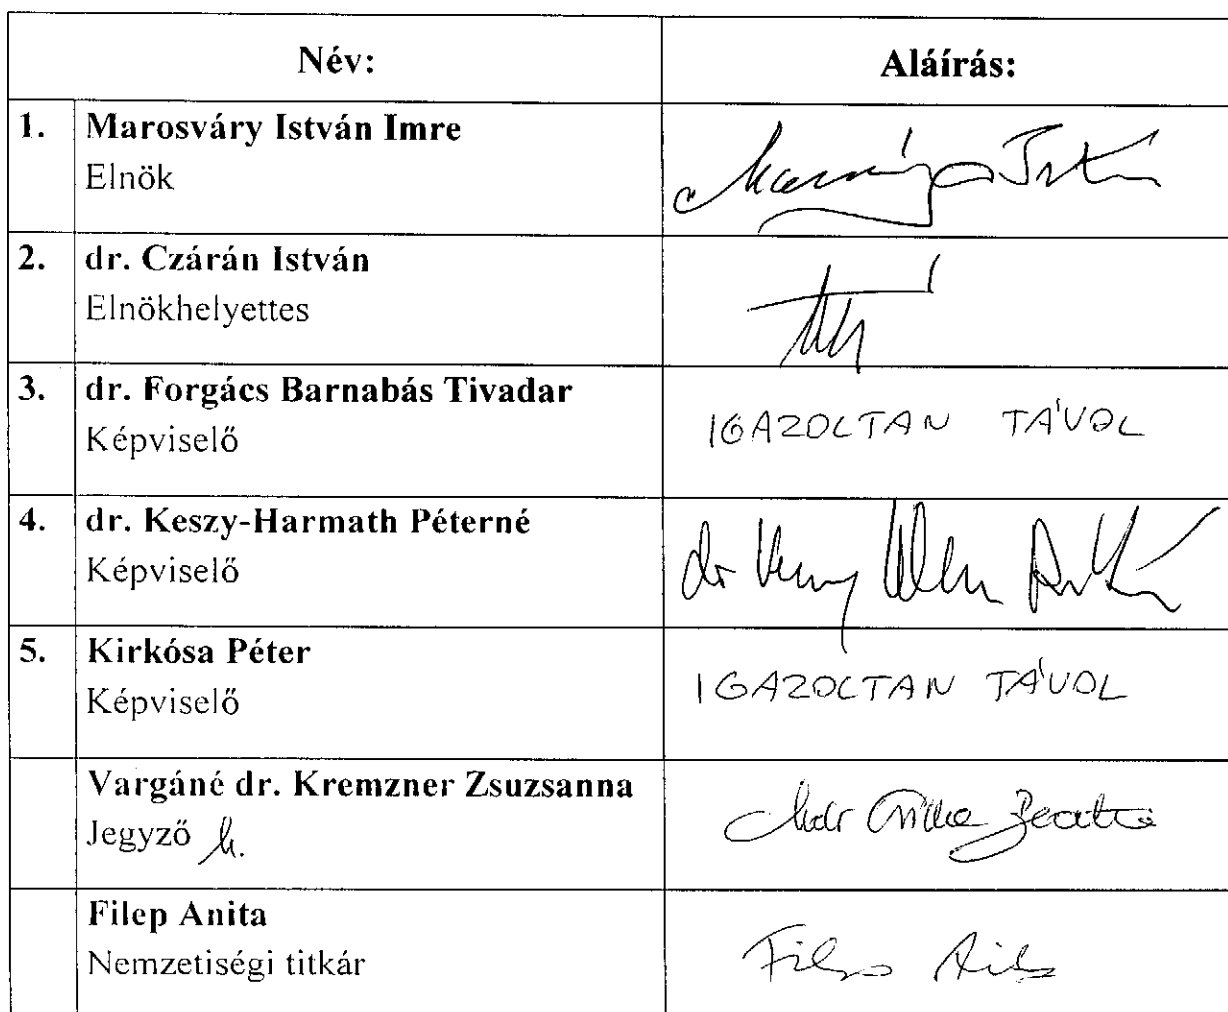 Név: Aláírás:
1. Marosváry István Imre
Elnök
2. dr. Czárán István
Elnökhelyettes
3. dr. Forgács Barnabás Tivadar
Képviselő
IGAZOLTAN TÁVOL
4. dr. Keszy-Harmath Péterné
Képviselő
5. Kirkósa Péter
Képviselő
IGAZOLTAN TÁVOL
Vargáné dr. Kremzner Zsuzsanna
Jegyző h.
Filep Anita
Nemzetiségi titkár